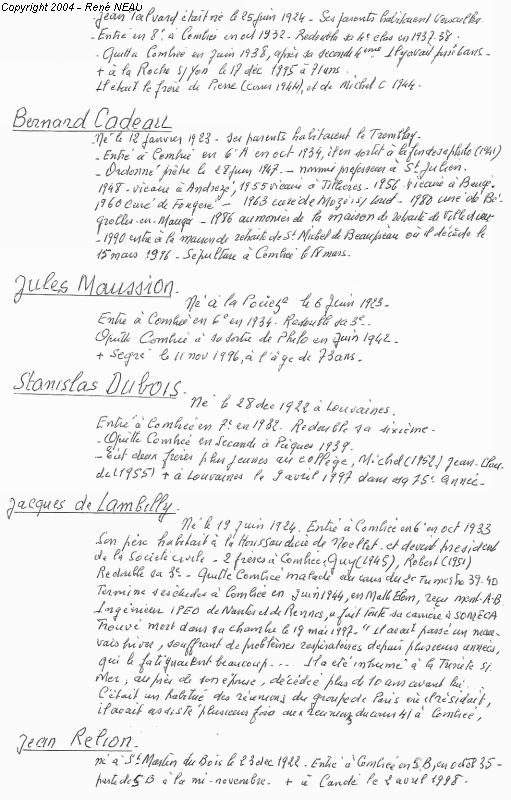 Copyright 2004 - René NEAU
Jean Talvard était né le 25 juin 1924 - Ses parents habitaient Versailles.
- Entré en 8e à Combrée en oct 1932 - Redouble sa 4e clas en 1937-38.
- Quitta Combrée en Juin 1938, après sa seconde 4ème. Il y avait passé 6 ans -
+ à la Roche s/Yon le 17 déc 1995 à 71 ans.
Il était le frère de Pierre (cours 1944), et de Michel C. 1944.
Bernard Cadeau
Né le 12 janvier 1923 - ses parents habitaient le Tremblay -
- Entré à Combrée en 6e A en oct 1934, il en sortit à la fin de sa philo (1941)
- Ordonné prêtre le 28 juin 1947. - nommé professeur à St Julien.
1948 - vicaire à Andrezé, 1955 vicaire à Tillières - 1956 vicaire à Baugé.
1960 curé de Fougeré - 1963 curé de Mozé s/ Louet - 1980 curé de Bé-
grolles-en-Mauges - 1986 aumônier de la maison de retraite de
- 1990 entre à la maison de retraite de St Michel de Beaupréau où il décède le
15 mars 1996 - Sépulture à Combrée le 18 mars.
Jules Maussion.
Né à la Pouëze le 6 juin 1923 -
Entré à Combrée en 6e en 1934. Redouble sa 3e.
Quitte Combrée à sa sortie de Philo en juin 1942 -
+ Segré le 11 nov 1996, à l'âge de 73 ans.
Stanislas Dubois.
Né le 28 dec 1922 à Louvaines.
Entré à Combrée en 7e en 1932. Redouble sa sixième -
- Quitte Combrée en Seconde à Pâques 1939.
- Eut deux frères plus jeunes au collège, Michel (1952) Jean-Clau-
de (1955) + à Louvaines le 9 avril 1997 dans sa 75e année -
Jacques de Lambilly.
Né le 19 juin 1924. Entré à Combrée en 6e en oct 1933
Son père habitait à la Houssaudière de Noellet et devint président
de la Société civile - 2 frères à Combrée, Guy (1945), Robert (1951)
Redouble sa 3e - Quitte Combrée malade au cours du 2e Trimestre 39-40
Termine ses études à Combrée en juin 1944, en Math Elem, reçu ment. A.B.
Ingénieur de Nantes et de Rennes, a fait toute sa carrière à SOMECA
Trouvé mort dans sa chambre le 19 mai 1997 - "il avait passé un mau-
vais hiver, souffrant de problèmes respiratoires depuis plusieurs années,
qui le fatiguaient beaucoup - ... Il a été inhumé à la Turbale s/
Mer, auprès de son épouse, décédée plus de 10 ans avant lui.
C'était un habitué des réunions du groupe de Paris où il résidait,
il avait assisté plusieurs fois aux réunions du cours 41 à Combrée,
Jean Relion.
né à St Martin du Bois le 23 dec 1922. Entré à Combrée en 5 B, en octob 35 -
parti de 5 B à la mi-novembre - + à Candé le 2 avril 1998.